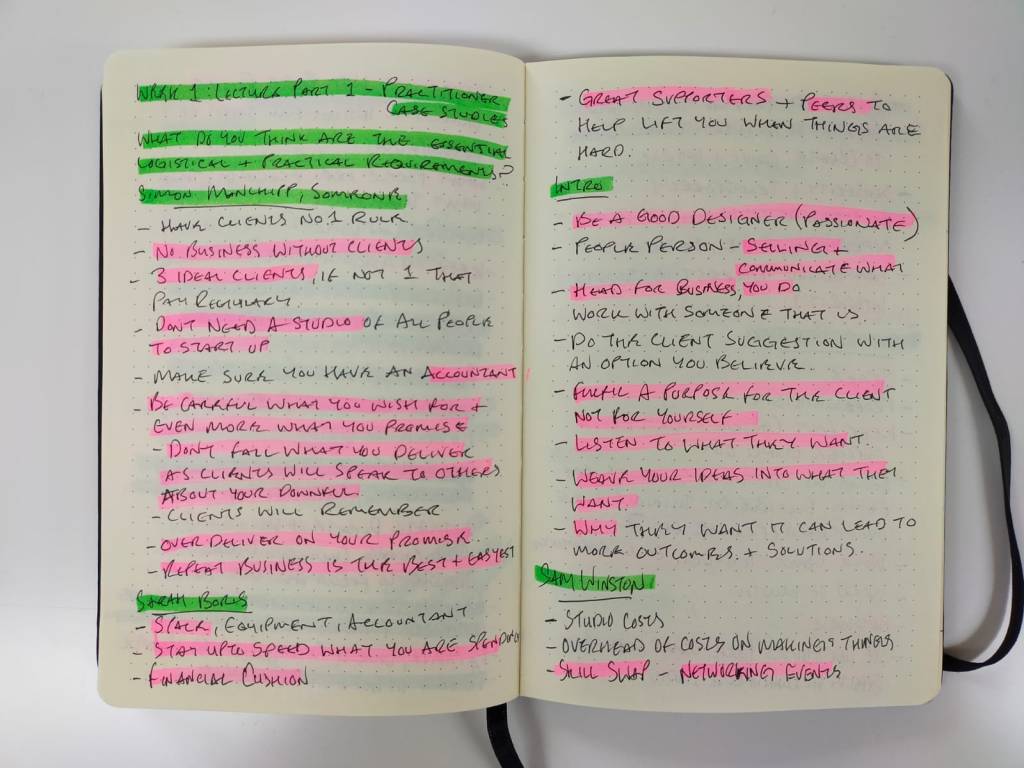 WEEK 1: LECTURE PART 1 - PRACTITIONER
CASE STUDIES
WHAT DO YOU THINK ARE THE ESSENTIAL
LOGISTICAL + PRACTICAL REQUIREMENTS?
SIMON MANCHIPP, SOMEONE
- HAVE CLIENTS NO 1 RULE
- NO BUSINESS WITHOUT CLIENTS
- 3 IDEAL CLIENTS, IF NOT 1 THAT
PAY REGULARLY.
- DON'T NEED A STUDIO OF ALL PEOPLE
TO START UP
- MAKE SURE YOU HAVE AN ACCOUNTANT
- BE CAREFUL WHAT YOU WISH FOR +
EVEN MORE WHAT YOU PROMISE
- DON'T FALL WHAT YOU DELIVER
AS CLIENTS WILL SPEAK TO OTHERS
ABOUT YOUR
- CLIENTS WILL REMEMBER
- OVER DELIVER ON YOUR PROMISE.
- REPEAT BUSINESS IS THE BEST + EASYEST
SARAH BORIS
- SPACE, EQUIPMENT, ACCOUNTANT
- STAY UPTO SPEED WHAT YOU ARE SPENDING
- FINANCIAL CUSHION
- GREAT SUPPORTERS + PEERS TO
HELP LIFT YOU WHEN THINGS ARE
HARD.
INTRO
- BE A GOOD DESIGNER (PASSIONATE)
- PEOPLE PERSON - SELLING +
COMMUNICATE WHAT
- HEAD FOR BUSINESS, YOU DO
WORK WITH SOMEONE THAT IS.
- DO THE CLIENT SUGGESTION WITH
AN OPTION YOU BELIEVE.
- FULFIL A PURPOSE FOR THE CLIENT
NOT FOR YOURSELF
- LISTEN TO WHAT THEY WANT.
- WEAVE YOUR IDEAS INTO WHAT THEY
WANT.
- WHY THEY WANT IT CAN LEAD TO
MORE OUTCOMES. + SOLUTIONS.
SAM WINSTON
- STUDIO COSTS
- OVERHEAD OF COSTS ON MAKING THINGS
- SKILL SWAP - NETWORKING EVENTS